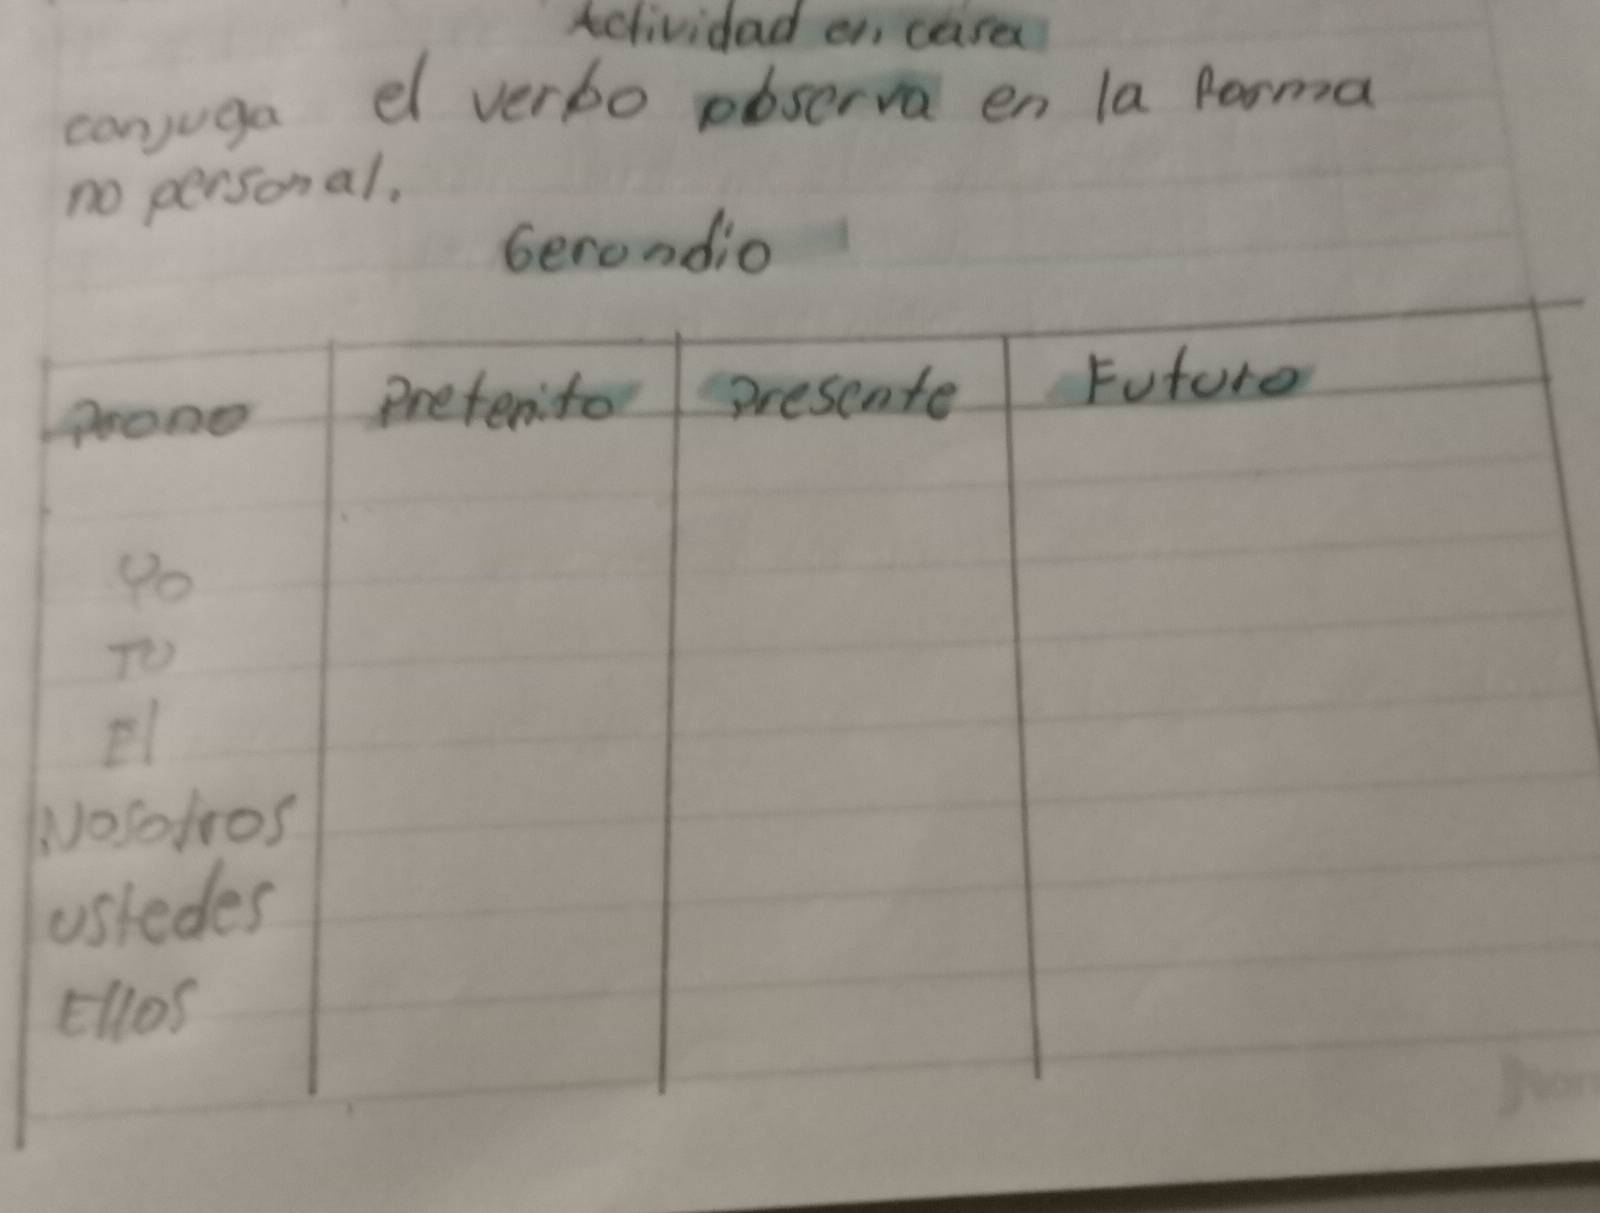 Actividad en casa
conjuga el verbo observa en la forma
no personal.
Gerundio
Prono Preterito Presente Futuro
Yo
TU
El
Nosotros
ustedes
Ellos